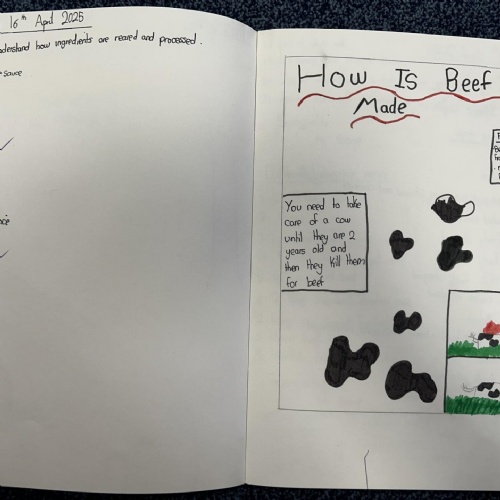 16th April 2025
understand how ingredients are reared and processed.
Sauce
How Is Beef
Made
You need to take
care of a cow
until they are 2
years old and
then they kill them
for beef